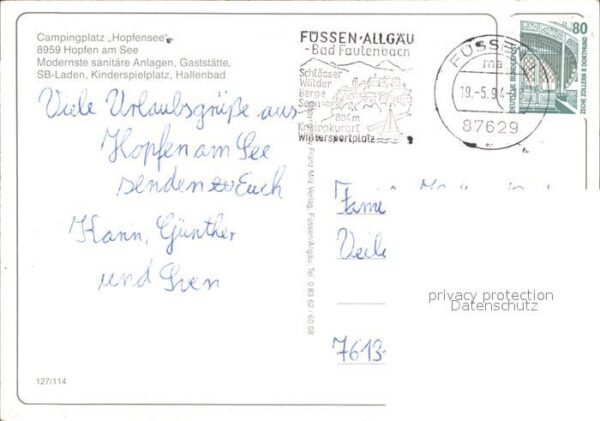 Campingplatz „Hopfensee"
8959 Hopfen am See
Modernste sanitäre Anlagen, Gaststätte,
SB-Laden, Kinderspielplatz, Hallenbad
FÜSSEN·ALLGÄU
-Bad Faulenbach
Schlösser
Wälder
Berge
Seen
804m
Kneippkurort
Wintersportplatz
FÜSSEN
ma
19.-5.94-
87629
80
DEUTSCHE BUNDESPOST
ZECHE ZOLLERN II DORTMUND
Viele Urlaubsgrüße aus
Hopfen am See
senden Euch
Karin, Günther
und Sven
Franz Milz Verlag, Füssen/Allgäu Tel. 0 83 62 / 60 08
Fami
Veile
7613-
privacy protection
Datenschutz
127/114